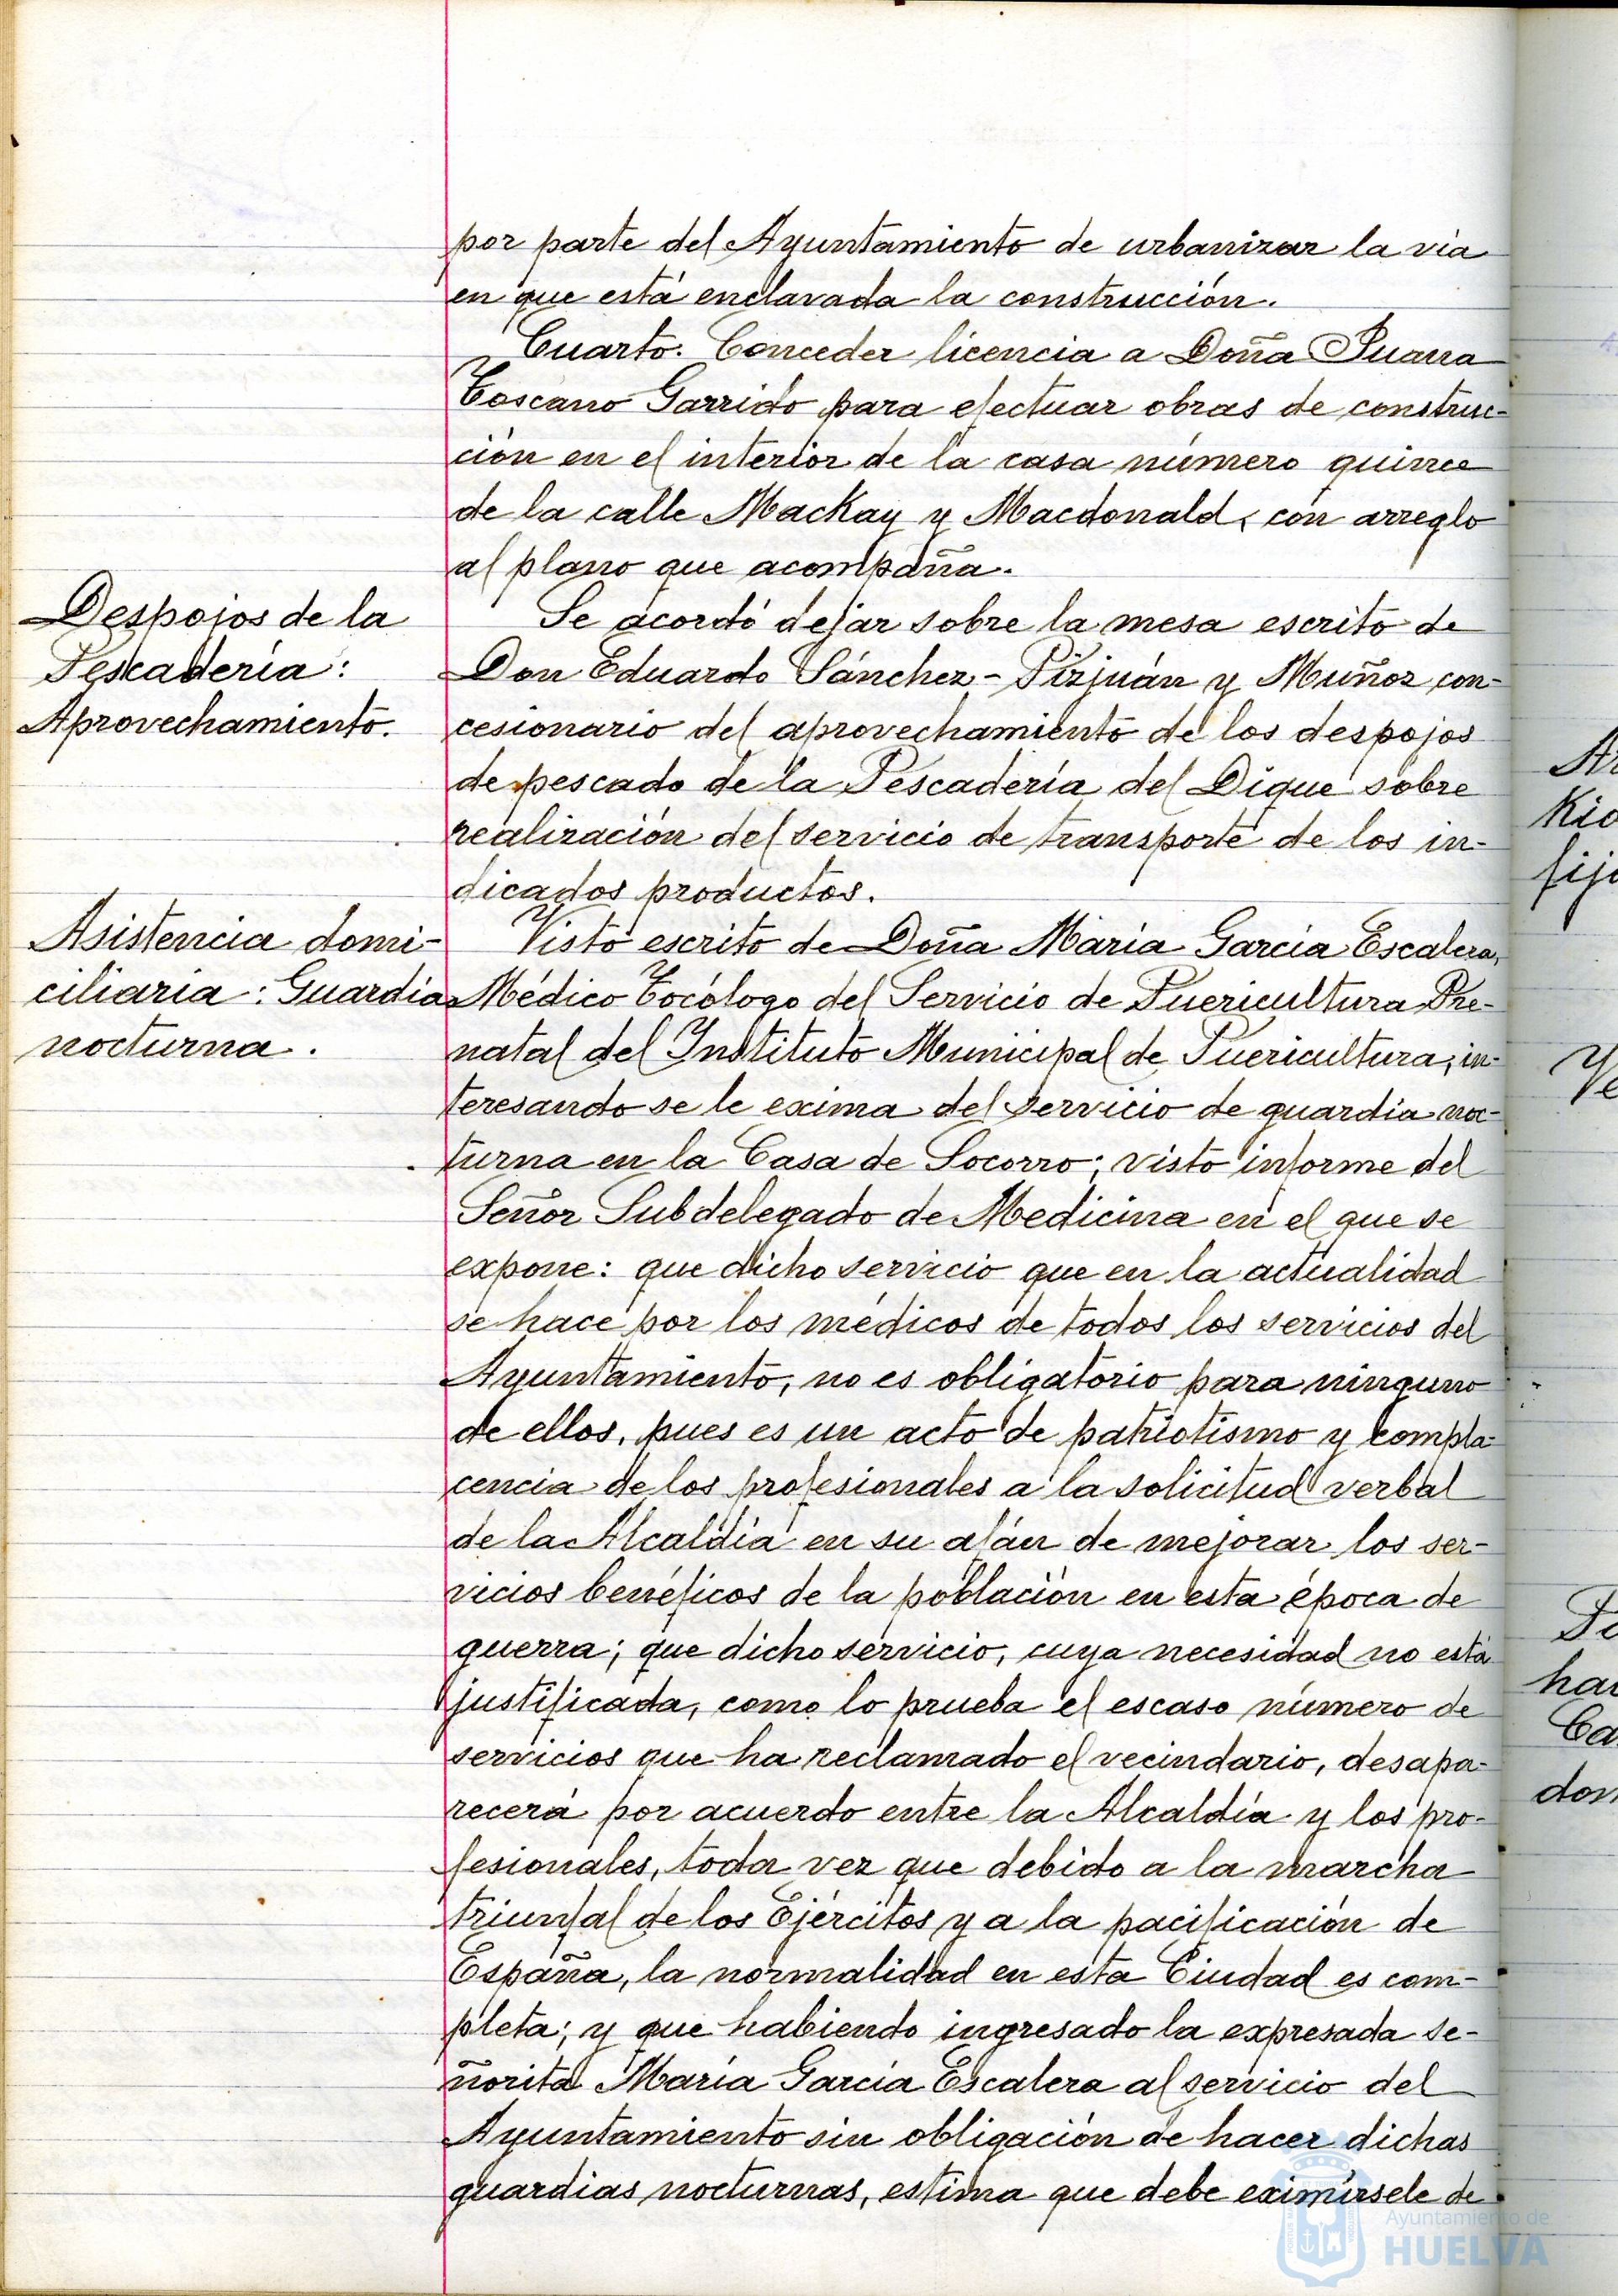 por parte del Ayuntamiento de urbanizar la via
en que está enclavada la construcción.
Cuarto. Conceder licencia a Doña Juana
Toscano Garrido para efectuar obras de construc-
ción en el interior de la casa número quince
de la calle Mackay y Macdonald, con arreglo
al plano que acompaña.
Despojos de la
Pescadería:
Aprovechamiento.
Se acordó dejar sobre la mesa escrito de
Don Eduardo Sánchez-Pizjuán y Muñoz con-
cesionario del aprovechamiento de los despojos
de pescado de la Pescadería del Dique sobre
realización del servicio de transporte de los in-
dicados productos.
Asistencia domi-
ciliaria: Guardia
nocturna.
Visto escrito de Doña María García Escalera,
Médico Tocólogo del Servicio de Puericultura Pre-
natal del Instituto Municipal de Puericultura, in-
teresando se le exima del servicio de guardia noc-
turna en la Casa de Socorro; visto informe del
Señor Subdelegado de Medicina en el que se
expone: que dicho servicio que en la actualidad
se hace por los médicos de todos los servicios del
Ayuntamiento, no es obligatorio para ninguno
de ellos, pues es un acto de patriotismo y compla-
cencia de los profesionales a la solicitud verbal
de la Alcaldía en su afán de mejorar los ser-
vicios benéficos de la población en esta época de
guerra; que dicho servicio, cuya necesidad no está
justificada, como lo prueba el escaso número de
servicios que ha reclamado el vecindario, desapa-
recerá por acuerdo entre la Alcaldía y los pro-
fesionales, toda vez que debido a la marcha
triunfal de los Ejércitos y a la pacificación de
España, la normalidad en esta Ciudad es com-
pleta; y que habiendo ingresado la expresada se-
ñorita María García Escalera al servicio del
Ayuntamiento sin obligación de hacer dichas
guardias nocturnas, estima que debe eximírsele de
Ayuntamiento de
HUELVA